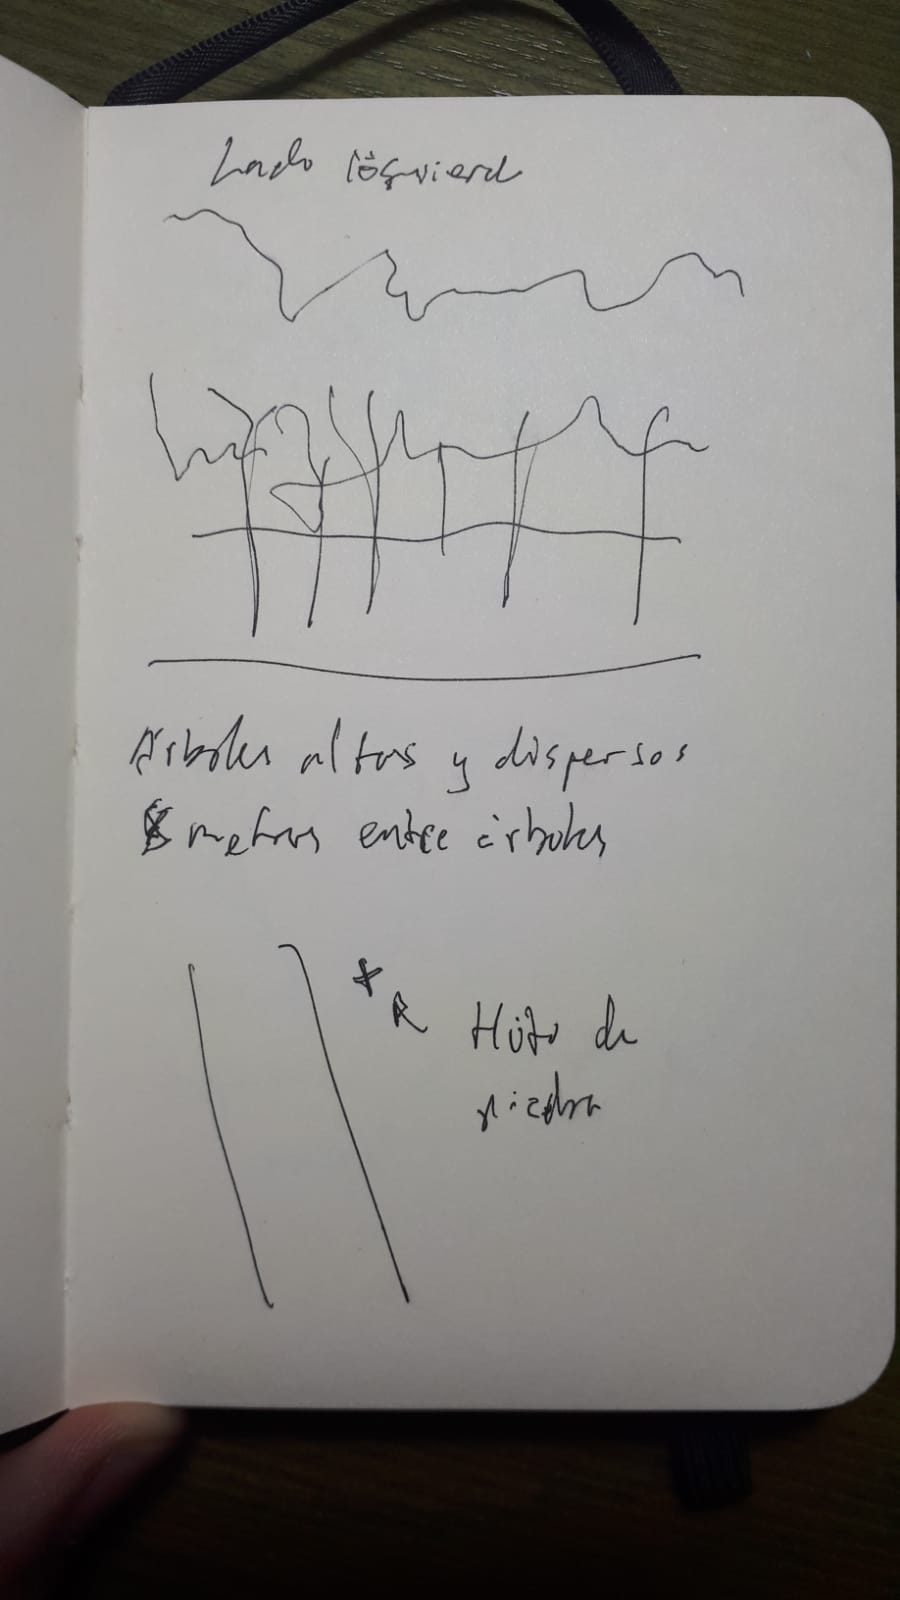 Lado izquierd
Árboles altos y dispersos
metros entre árboles
R
Hito de
piedra